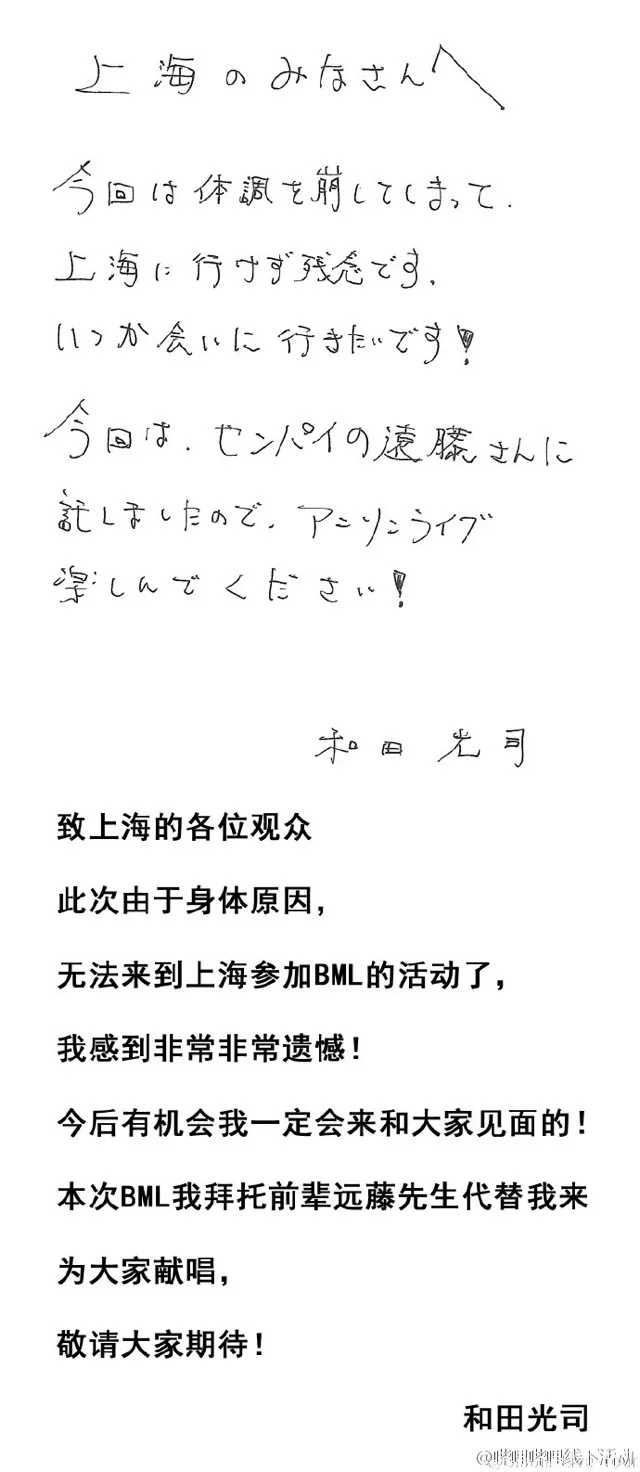 上海のみなさんへ
今回は体調を崩してしまって.
上海に行けず残念です.
いつか会いに行きたいです!
今回は.センパイの遠藤さんに
託しましたので.アニソンライブ
楽しんでください!
和田光司
致上海的各位观众
此次由于身体原因，
无法来到上海参加BML的活动了，
我感到非常非常遗憾！
今后有机会我一定会来和大家见面的！
本次BML我拜托前辈远藤先生代替我来
为大家献唱，
敬请大家期待！
和田光司
@哔哩哔哩线下活动